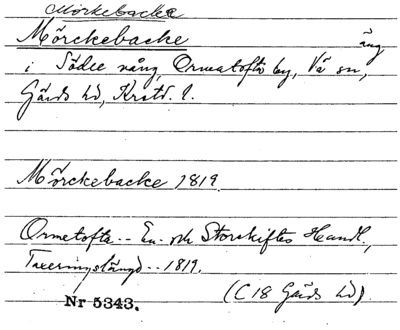 Mörkebacke
Mörckebacke äng
i Södre vång, Ormatofta by, Vä sn,
Gärds hd, Kristd. l.
Mörckebacke 1819
Ormetofta -- En- och Storskiftes Handl.,
Taxeringslängd -- 1819.
Nr 5343. (C18 Gärds hd)